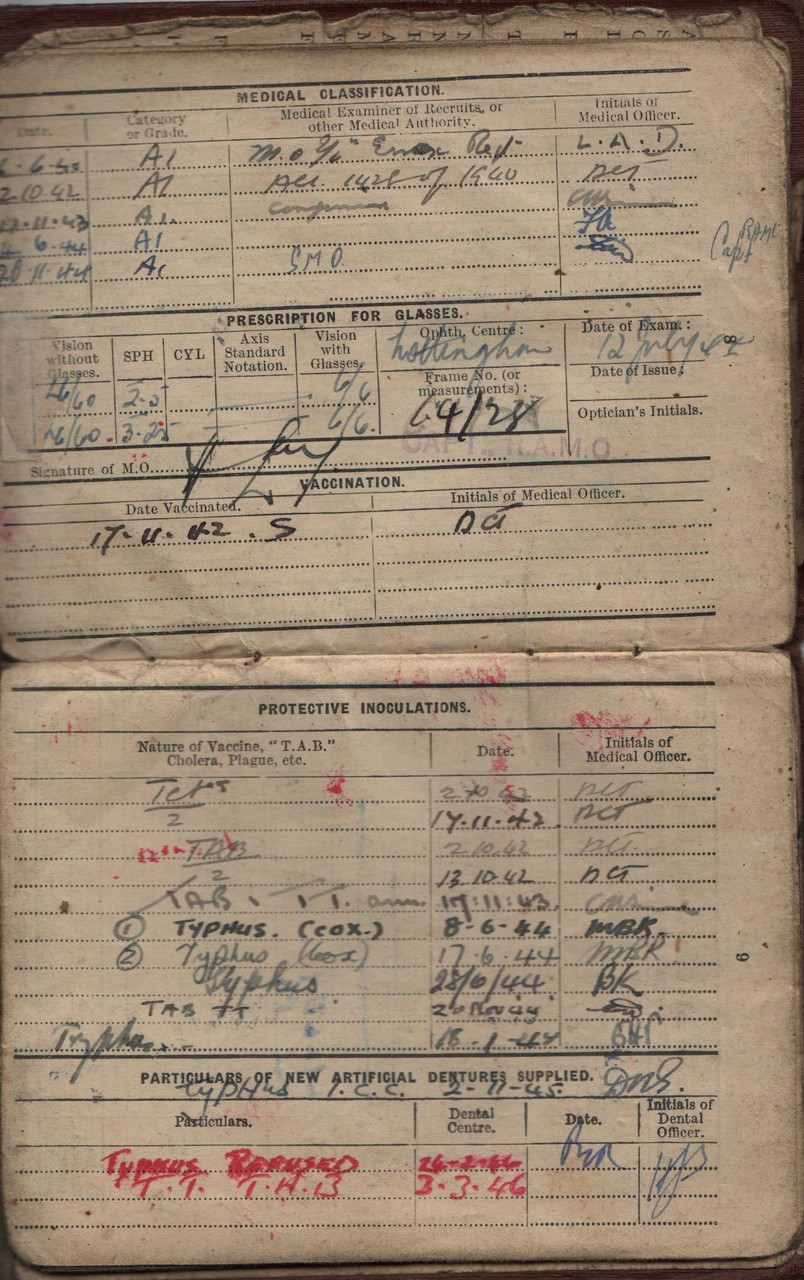 MEDICAL CLASSIFICATION.
Date. Category or Grade. Medical Examiner of Recruits, or other Medical Authority. Initials of Medical Officer.
6.40 A1 M.O. Essex Regt L.A.D.
2.10.42 A1 ACI 1428 of 1940 DCT
17.11.43 A1.
6.44 A1
20.11.44 A1 SMO
Capt RAMC
PRESCRIPTION FOR GLASSES.
Vision without Glasses. SPH CYL Axis Standard Notation. Vision with Glasses. Ophth. Centre: Nottingham Date of Exam.: 12 July 42
6/60 2.5 6/6 Frame No. (or measurements): Date of Issue:
6/60. 3.25 6/6. 64/28 Optician's Initials.
CAPT., R.A.M.C.
Signature of M.O.
VACCINATION.
Date Vaccinated. Initials of Medical Officer.
17.11.42. S DCT
8
PROTECTIVE INOCULATIONS.
Nature of Vaccine, "T.A.B." Cholera, Plague, etc. Date. Initials of Medical Officer.
2 10 42 DCT
2 17.11.42. DCT
TAB 2 10.42 DCT
2 13 10 42 DCT
TAB TT. 17:11:43.
① TYPHUS. (COX.) 8-6-44 MBK.
② Typhus (Cox) 17.6.44 MBK
Typhus 28/6/44 BK
TAB TT 20 Nov 44
Typhus 18.1.
9
PARTICULARS OF NEW ARTIFICIAL DENTURES SUPPLIED.
Typhus 1.C.C. 2-11-45.
Particulars. Dental Centre. Date. Initials of Dental Officer.
TYPHUS REFUSED 26-2-46
T.T. T.A.B 3-3-46